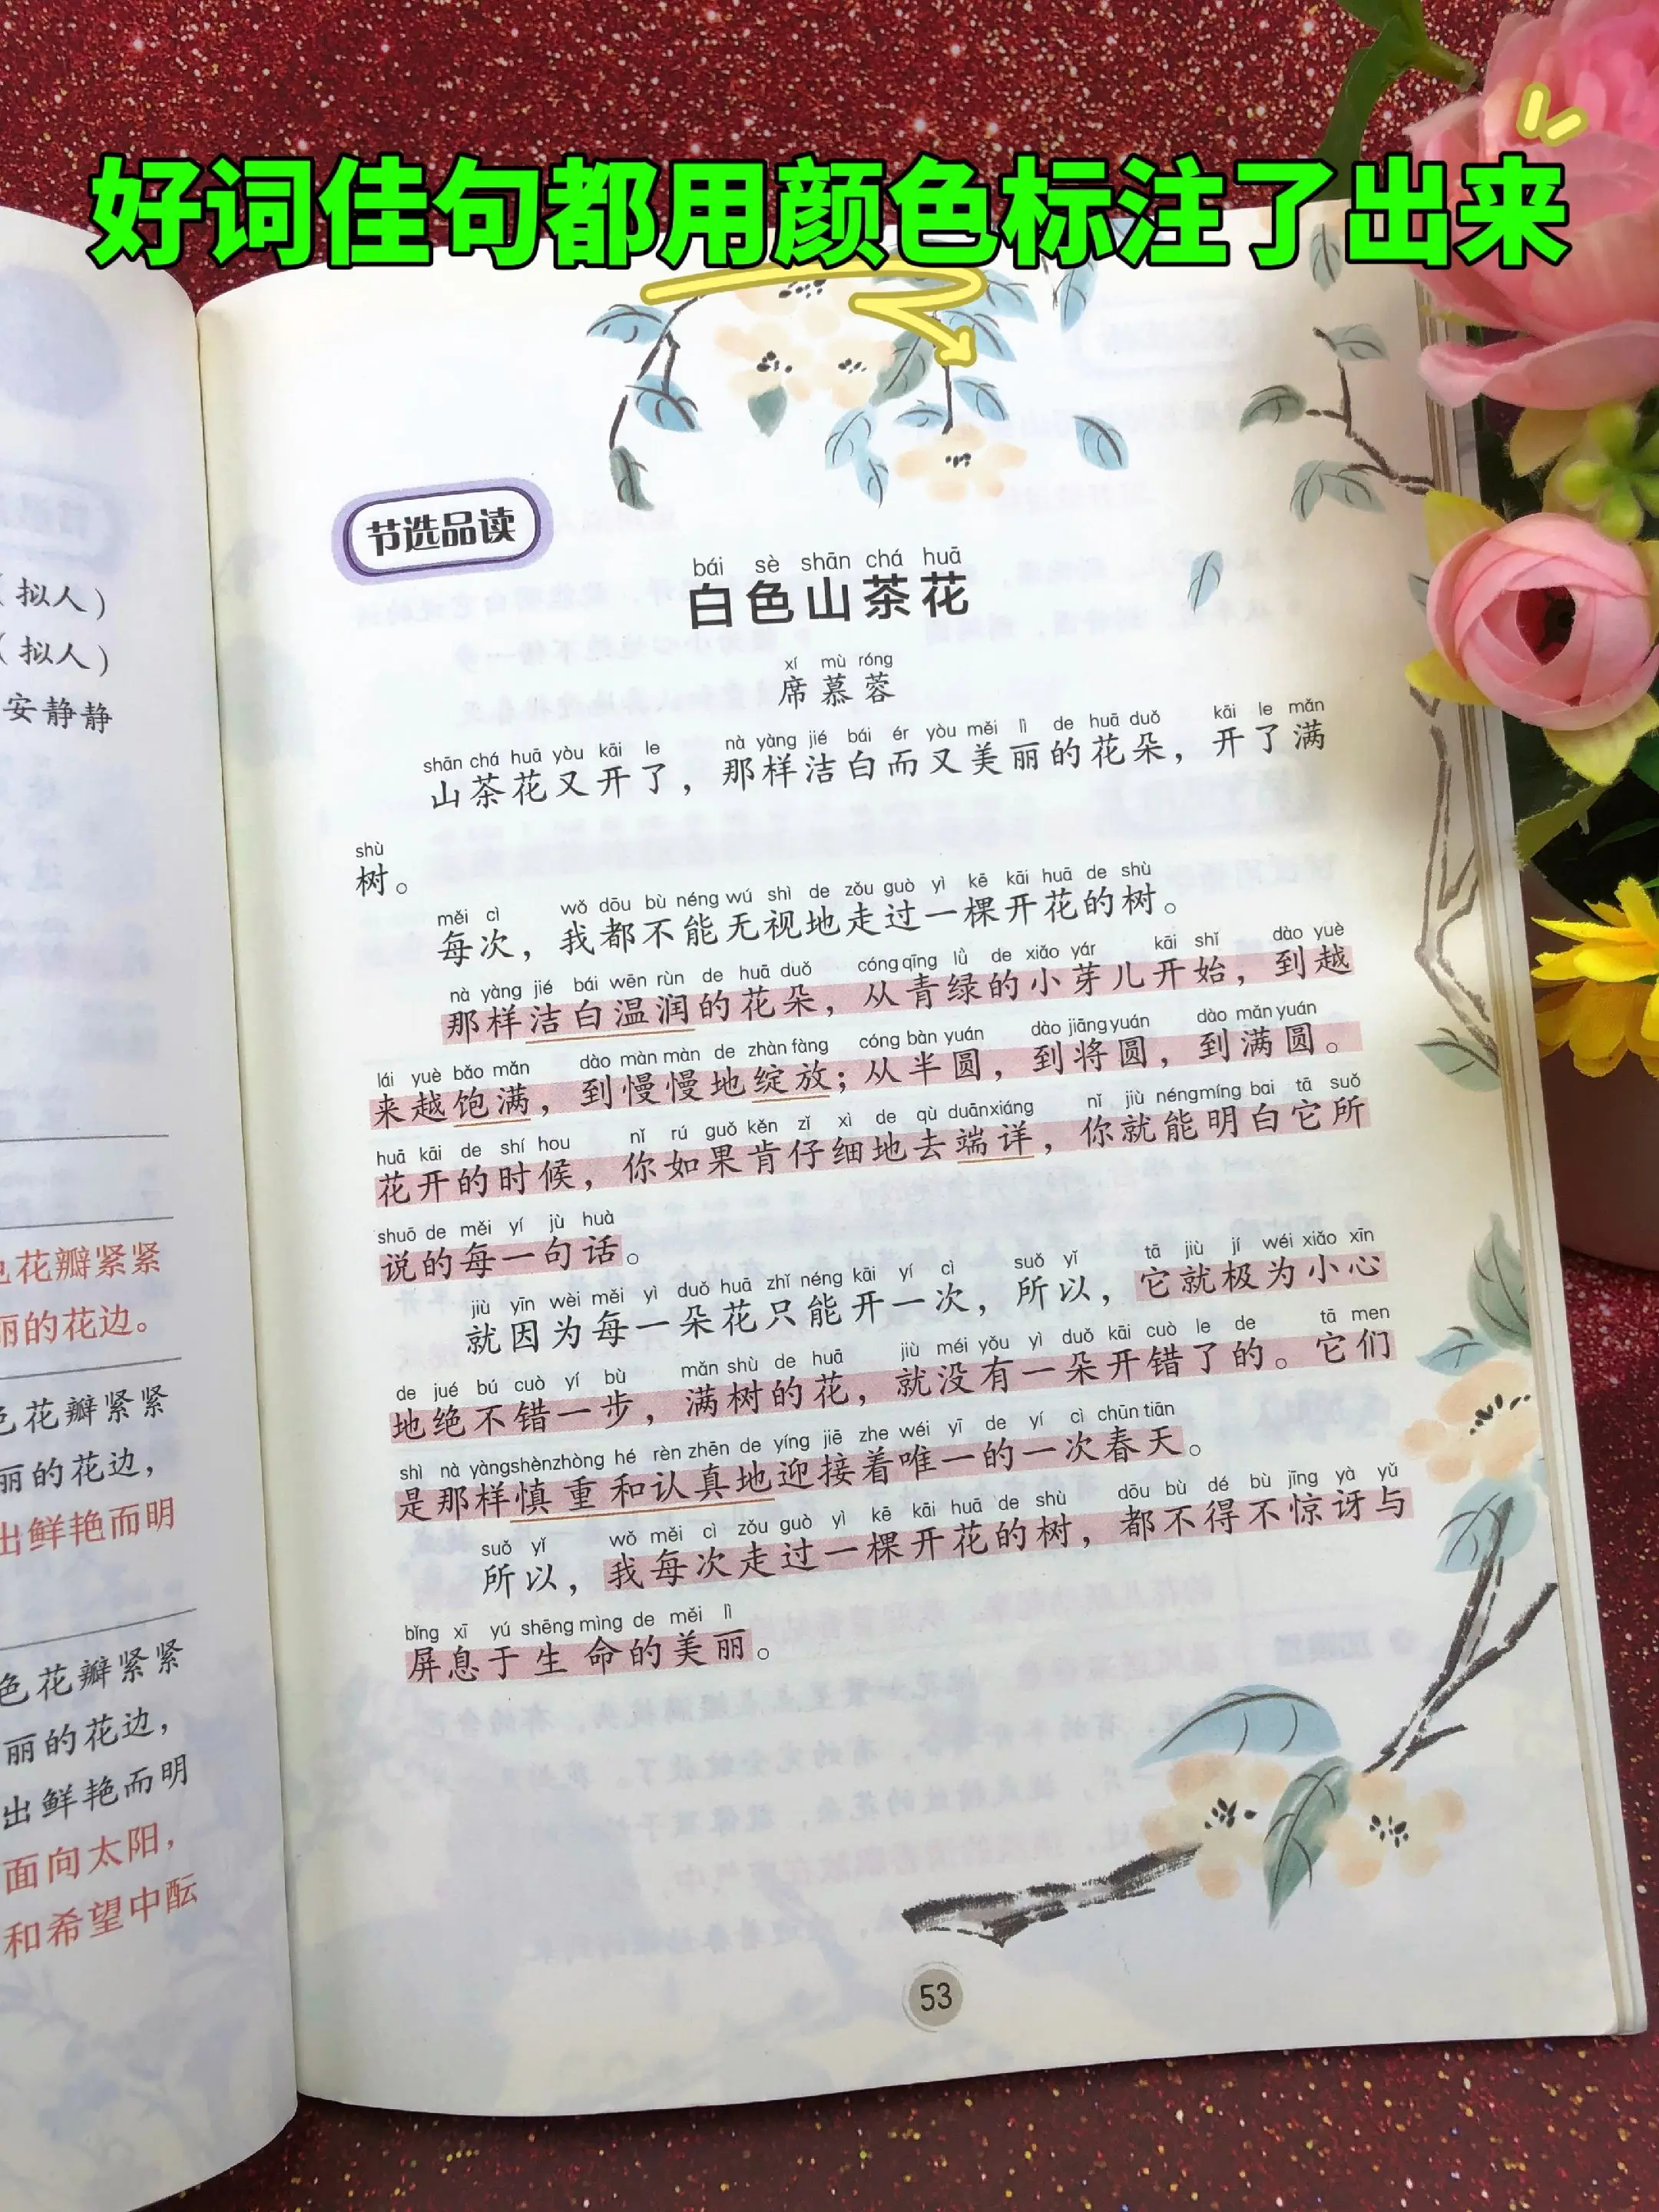 好词佳句都用颜色标注了出来
(拟人)
(拟人)
安静静
花瓣紧紧
丽的花边。
色花瓣紧紧
丽的花边,
出鲜艳而明
色花瓣紧紧
丽的花边,
出鲜艳而明
面向太阳,
和希望中酝
节选品读
bái sè shān chá huā
白色山茶花
xí mù róng
席慕蓉
shān chá huā yòu kāi le nà yàng jié bái ér yòu měi lì de huā duǒ kāi le mǎn
山茶花又开了,那样洁白而又美丽的花朵,开了满
shù
树。
měi cì wǒ dōu bù néng wú shì de zǒu guò yì kē kāi huā de shù
每次,我都不能无视地走过一棵开花的树。
nà yàng jié bái wēn rùn de huā duǒ cóng qīng lǜ de xiǎo yár kāi shǐ dào yuè
那样洁白温润的花朵,从青绿的小芽儿开始,到越
lái yuè bǎo mǎn dào màn màn de zhàn fàng cóng bàn yuán dào jiāng yuán dào mǎn yuán
来越饱满,到慢慢地绽放;从半圆,到将圆,到满圆。
huā kāi de shí hou nǐ rú guǒ kěn zǐ xì de qù duān xiáng nǐ jiù néng míng bai tā suǒ
花开的时候,你如果肯仔细地去端详,你就能明白它所
shuō de měi yí jù huà
说的每一句话。
jiù yīn wèi měi yì duǒ huā zhǐ néng kāi yí cì suǒ yǐ tā jiù jí wéi xiǎo xīn
就因为每一朵花只能开一次,所以,它就极为小心
de jué bú cuò yí bù mǎn shù de huā jiù méi yǒu yì duǒ kāi cuò le de tā men
地绝不错一步,满树的花,就没有一朵开错了的。它们
shì nà yàng shèn zhòng hé rèn zhēn de yíng jiē zhe wéi yī de yí cì chūn tiān
是那样慎重和认真地迎接着唯一的一次春天。
suǒ yǐ wǒ měi cì zǒu guò yì kē kāi huā de shù dōu bù dé bù jīng yà yǔ
所以,我每次走过一棵开花的树,都不得不惊讶与
bǐng xī yú shēng mìng de měi lì
屏息于生命的美丽。
53